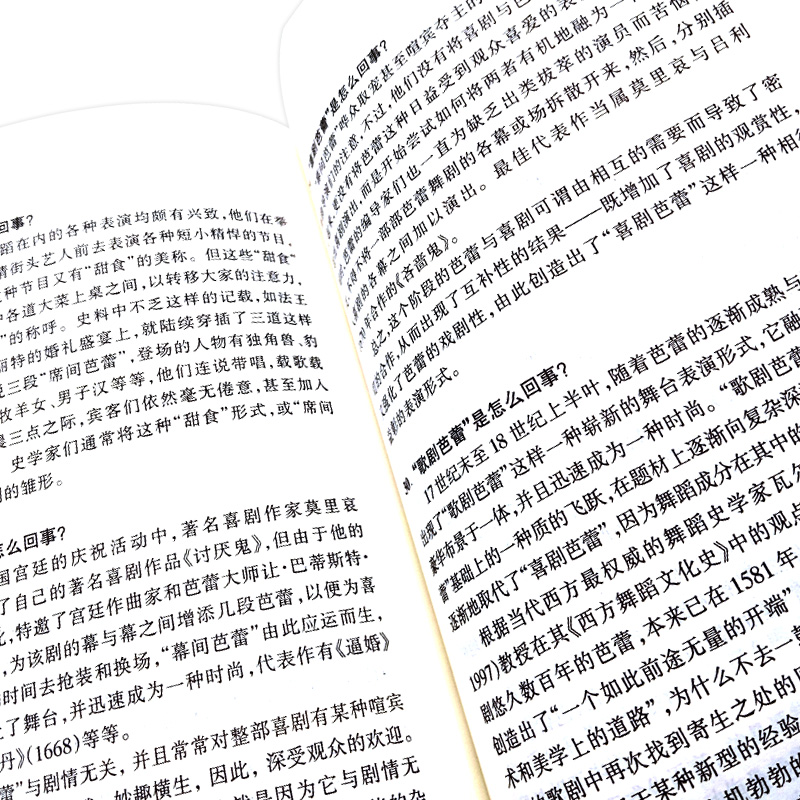 回事？
蹈在内的各种表演均颇有兴致，他们在举
请街头艺人前去表演各种短小精悍的节目，
这种节目又有“甜食”的美称。但这些“甜食”
各道大菜上桌之间，以转移大家的注意力，
”的称呼。史料中不乏这样的记载，如法王
丽特的婚礼盛宴上，就陆续穿插了三道这样
三段“席间芭蕾”，登场的人物有独角兽、豹
牧羊女、男子汉等等，他们连说带唱，载歌载
晨三点之际，宾客们依然毫无倦意，甚至加入
史学家们通常将这种“甜食”形式，或“席间
的雏形。
怎么回事？
国宫廷的庆祝活动中，著名喜剧作家莫里哀
了自己的著名喜剧作品《讨厌鬼》，但由于他的
特邀了宫廷作曲家和芭蕾大师让·巴蒂斯特·
，为该剧的幕与幕之间增添几段芭蕾，以便为喜
时间去抢装和换场，“幕间芭蕾”由此应运而生，
了舞台，并迅速成为一种时尚，代表作有《逼婚》
丹》(1668)等等。
”与剧情无关，并且常常对整部喜剧有某种喧宾
妙趣横生，因此，深受观众的欢迎。
就是因为它与剧情无
”是怎么回事？
哗众取宠甚至喧宾夺主的
们的注意，不过，他们没有将喜剧与芭
更没有将芭蕾这种日益受到观众喜爱的表
演出，而是开始尝试如何将两者有机地融为一
芭蕾的编导家们也一直为缺乏出类拔萃的演员而苦恼
不将一部部芭蕾舞剧的各幕或场拆散开来，然后，分别插
剧的各幕之间加以演出。最佳代表作当属莫里哀与吕利
年合作的《吝啬鬼》。
总之，这个阶段的芭蕾与喜剧可谓由相互的需要而导致了密
合作，从而出现了互补性的结果——既增加了喜剧的观赏性，
强化了芭蕾的戏剧性，由此创造出了“喜剧芭蕾”这样一种相
的表演形式。
“歌剧芭蕾”是怎么回事？
17世纪末至18世纪上半叶，随着芭蕾的逐渐成熟与
出现了“歌剧芭蕾”这样一种崭新的舞台表演形式，它融
豪华布景于一体，并且迅速成为一种时尚。“歌剧芭蕾
蕾”基础上的一种质的飞跃，在题材上逐渐向复杂深
逐渐地取代了“喜剧芭蕾”，因为舞蹈成分在其中的
根据当代西方最权威的舞蹈史学家瓦尔
1997)教授在其《西方舞蹈文化史》中的观点
剧悠久数百年的芭蕾，本来已在1581年
创造出了“一个如此前途无量的开端”
术和美学上的道路”，为什么不去一
的歌剧中再次找到寄生之处的
于某种新型的经验
机勃勃的